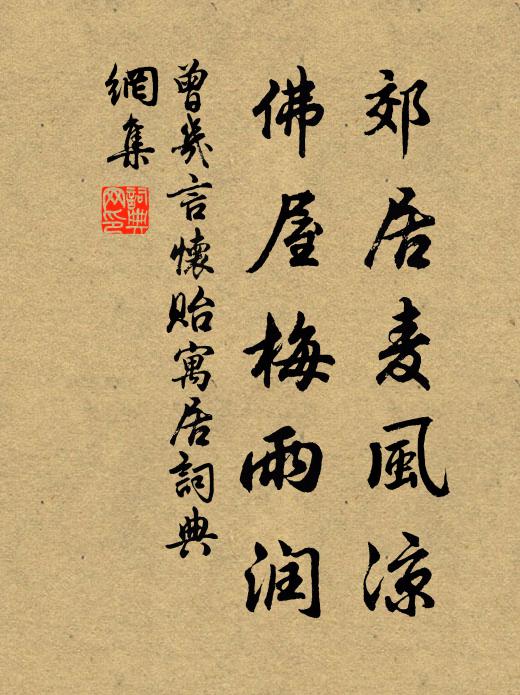 郊居麦風凉
佛屋梅雨润
曾幾言懷貽寓居詞典
網集
詞典
网印